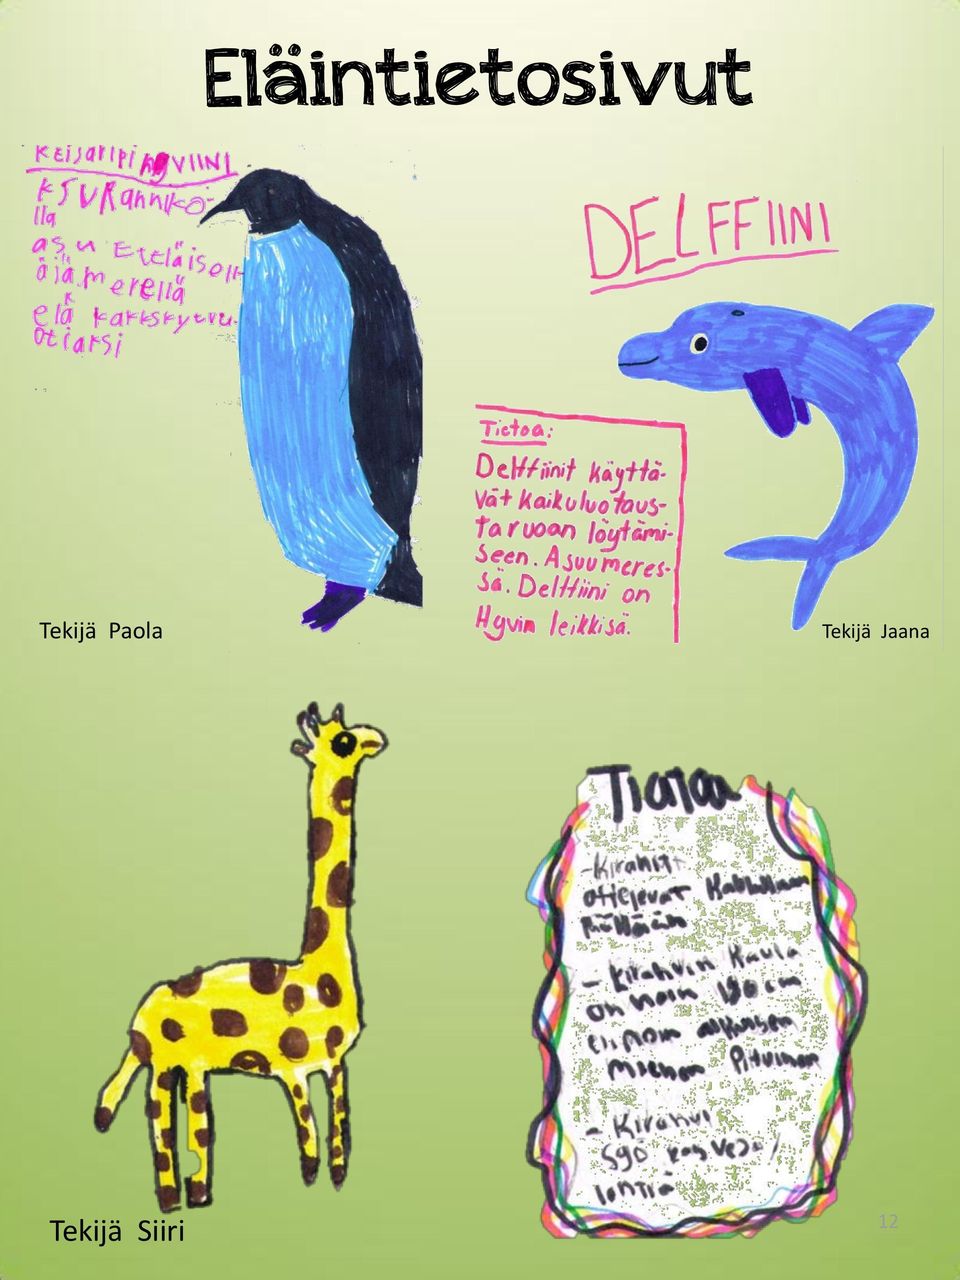 Eläintietosivut
KEISARIPINGVIINI
asuu Eteläisell
äjäämerellä
elä
otiaksi
DELFFIINI
Tietoa:
Delffiinit käyttä-
vät kaikuluotaus-
ta ruoan löytämi-
seen. Asuu meres-
sä. Delffiini on
Hyvin leikkisä.
Tekijä Paola
Tekijä Jaana
Tietoa
-Kirahvit
ottelevat
- Kirahvin Kaula
on noin
eli noin
miehen Pituinen
- Kirahvi
syö
lehtiä
Tekijä Siiri
12